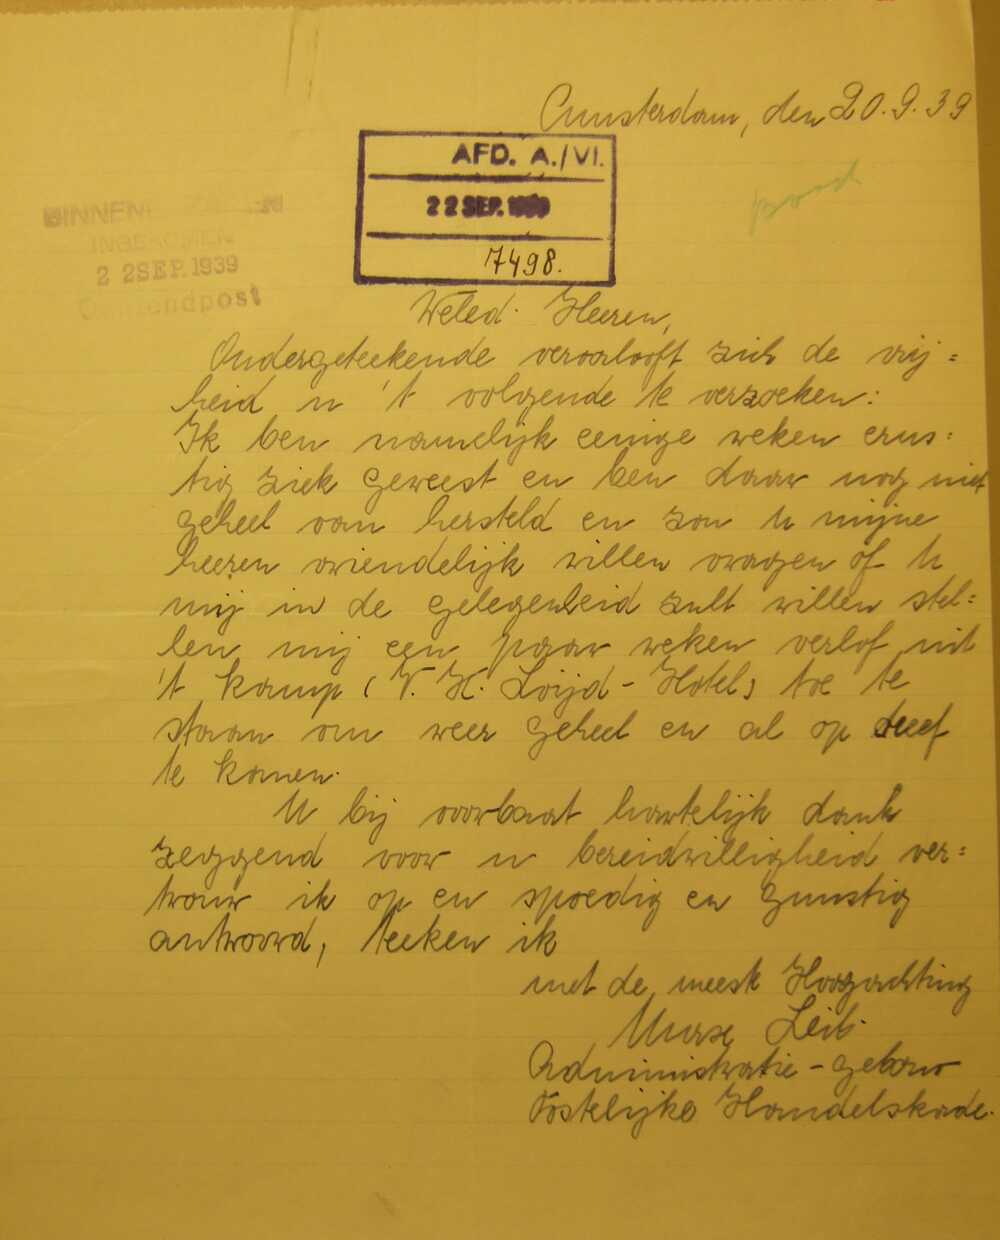 Amsterdam, den 20.9.39
AFD. A./VI.
22 SEP. 1939
7498.
BINNENL
INGEKOMEN
2 2 SEP. 1939
Ochtendpost
Weled. Heeren,
Ondergeteekende veroorlooft zich de vrij=
heid u 't volgende te verzoeken:
Ik ben namelijk eenige weken erns=
tig ziek geweest en ben daar nog niet
geheel van hersteld en zou u mijne
heeren vriendelijk willen vragen of U
mij in de gelegenheid zult willen stel=
len mij een paar weken verlof uit
't kamp (V. H. Loijd-Hotel) toe te
staan om weer geheel en al op dreef
te komen.
U bij voorbaat hartelijk dank
zeggend voor u bereidwilligheid ver=
trouw ik op en spoedig en gunstig
antwoord, teeken ik
met de meeste Hoogachting
Leib.
Administratie-gebouw
Oostelijke Handelskade.